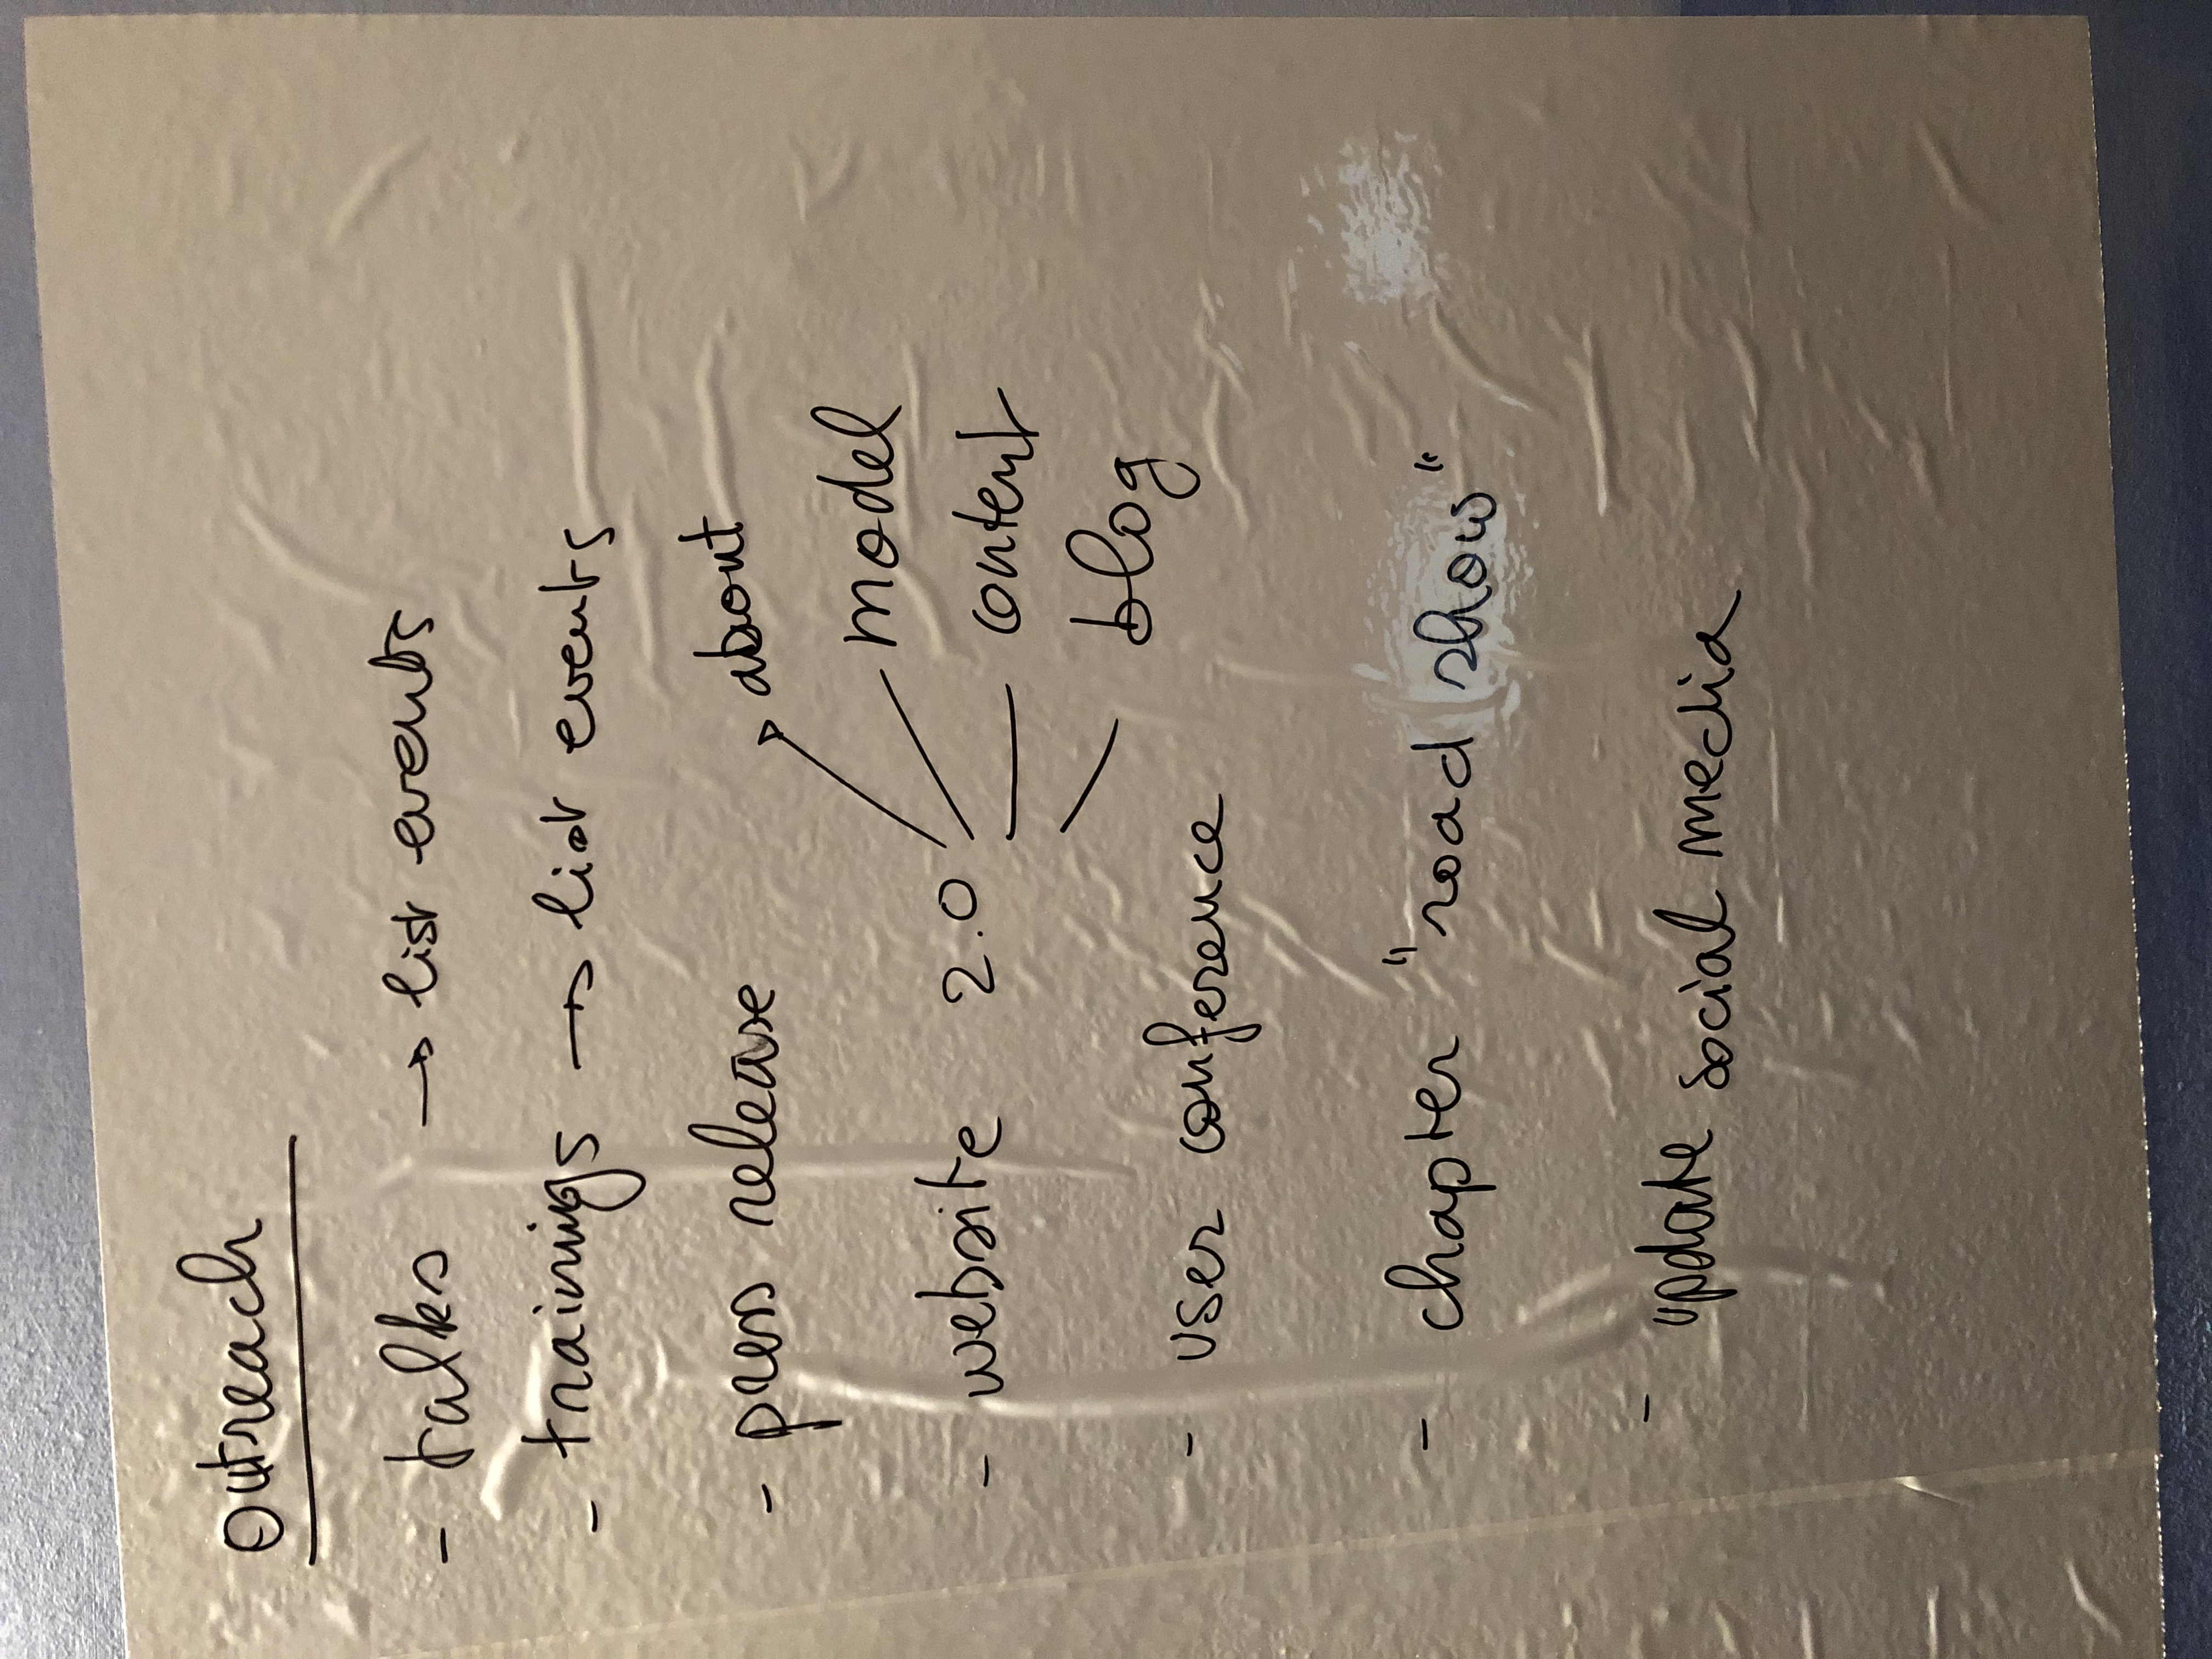 outreach
- talks → list events
- trainings → list events
- press release
- website 2.0 → about
model
content
blog
- user conference
- chapter "road show"
- update social media